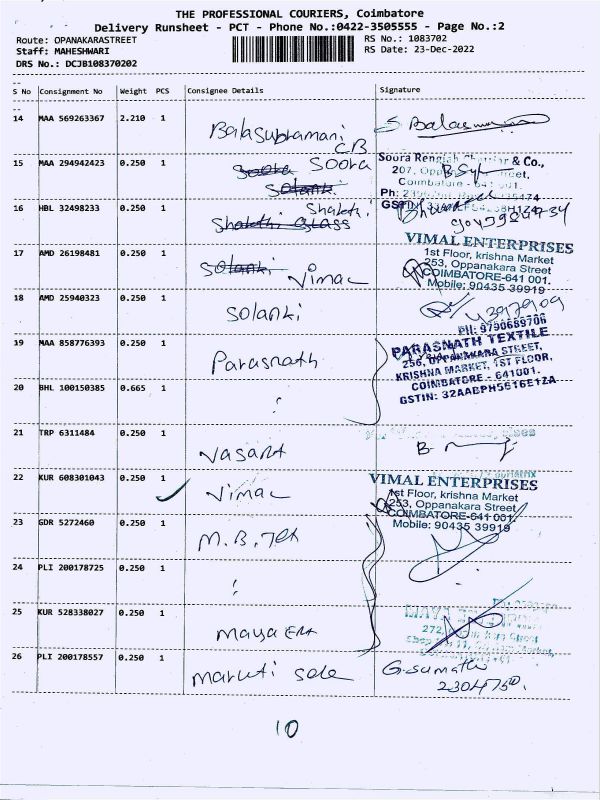 THE PROFESSIONAL COURIERS, Coimbatore
Delivery Runsheet - PCT - Phone No.:0422-3505555 - Page No.:2
Route: OPANAKARASTREET
RS No.: 1083702
Staff: MAHESHWARI
RS Date: 23-Dec-2022
DRS No.: DCJB108370202
S No Consignment No Weight PCS Consignee Details Signature
14 MAA 569263367 2.210 1 Balasubramani
CB
15 MAA 294942423 0.250 1 Soora
Soora Rengiah & Co.,
207,
Coimbatore - 641 001.
16 HBL 32498233 0.250 1 Shakthi
Shakthi Glass
17 AMD 26198481 0.250 1 Solanki Vimal
VIMAL ENTERPRISES
1st Floor, krishna Market
253, Oppanakara Street
COIMBATORE-641 001.
Mobile: 90435 39919
18 AMD 25940323 0.250 1 Solanki
19 MAA 858776393 0.250 1 Parasnath
PH: 9790689706
PARASNATH TEXTILE
256, OPPANAKARA STREET,
KRISHNA MARKET, 1ST FLOOR,
COIMBATORE - 641001.
20 BHL 100150385 0.665 1
21 TRP 6311484 0.250 1 Vasant
22 KUR 608301043 0.250 1 Vimal
VIMAL ENTERPRISES
1st Floor, krishna Market
253, Oppanakara Street
COIMBATORE-641 001.
Mobile: 90435 39919
23 GDR 5272460 0.250 1 M.B. Tex
24 PLI 200178725 0.250 1
25 KUR 528338027 0.250 1 Maya
26 PLI 200178557 0.250 1 Maruti Sale G. Sumathi
10